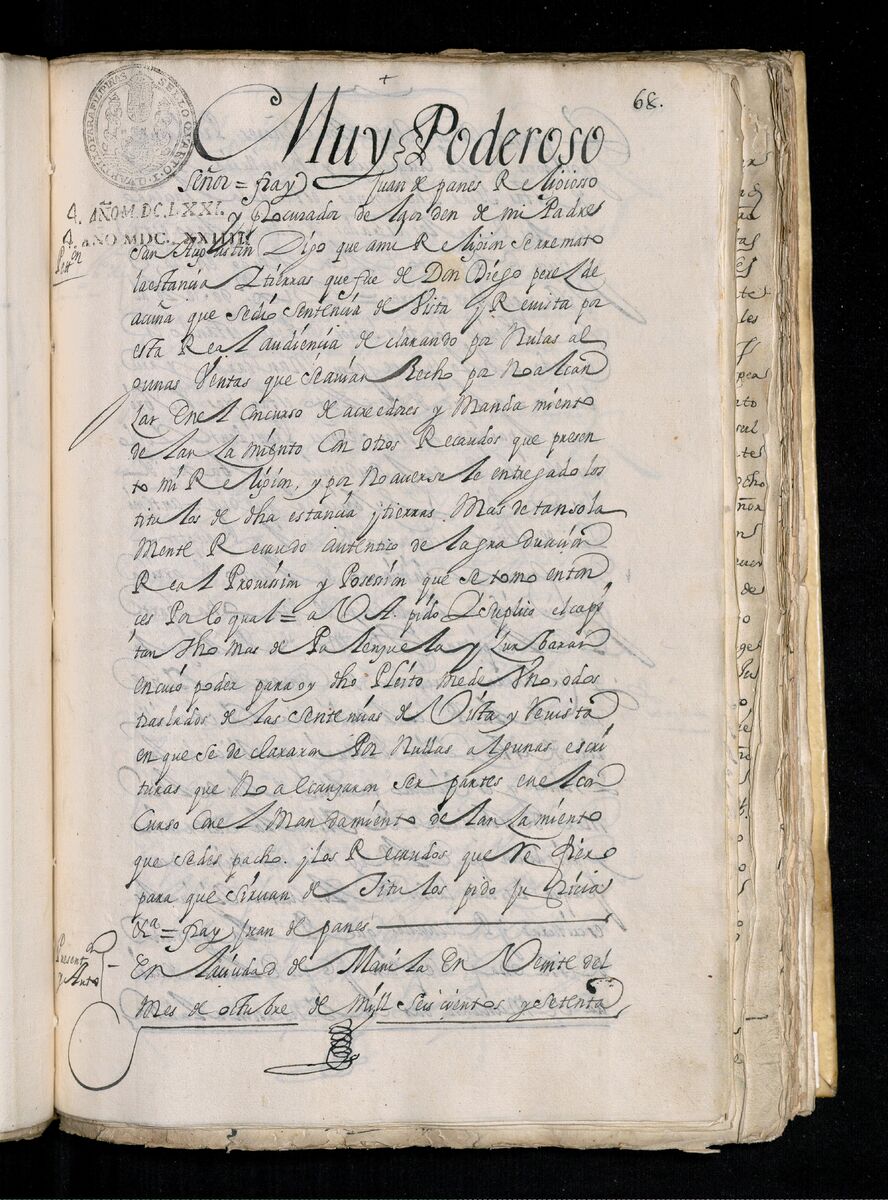 +
68.
SELLO QUARTO, I. QVARTILLO PARA FILIPINAS
Muy Poderoso
Señor = fray Juan de panes Religiosso
4. AÑO M. DC. LXXI.
y Procurador de la orden de mi Padre
4. AÑO MDC. LXXIIII
Petton
San Augustin Digo que ami Religion se remato
la estancia Y tierras que fue de Don Diego perez de
acuña que se dio sentencia de Vista y Revista por
esta Real audiencia de clarando por Nulas al
gunas Ventas que se auian Hecho por No alcan
zar En el Concurso de acreedores y Manda miento
de lan za miento Con otros Recaudos que presen
to mi Religion, y por No auerse le entregado los
titulos de dha estancia y tierras. Mas de tan sola
Mente Recaudo autentico de la gra duacion
Real Prouission y Posesion que se tomo enton
ces Por lo qual = a V A. pido Y suplico el capi
tan tho mas de Pa lenzuela y Zur baran
en cuio poder para oy dho Pleito me de Vno, o dos
traslados de las sentencias de Vista y Revista
en que se de clararon Por Nullas algunas escri
turas que No alcanzaron ser partes en el con
Curso Con el Mandamiento de lan za miento
que se des pacho. y los Recaudos que Re fiero
para que siruan de Titulos pido Justicia
&a = fray Juan de panes
Present on
y Auto
En la ciudad de Manila En Veinte del
Mes de octubre de Mill Seiscientos y setenta